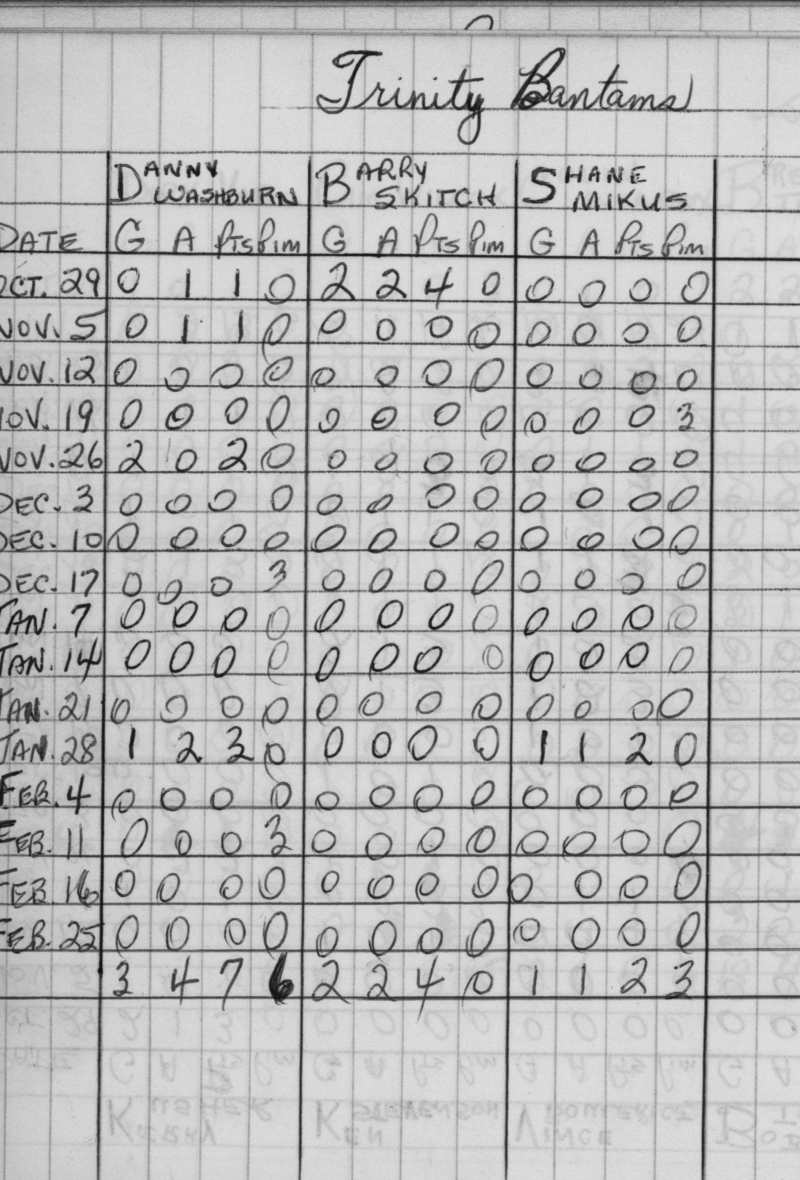 Trinity Bantams
DANNY WASHBURN BARRY SKITCH SHANE MIKUS
DATE G A Pts Pim G A Pts Pim G A Pts Pim
OCT. 29 0 1 1 0 2 2 4 0 0 0 0 0
NOV. 5 0 1 1 0 0 0 0 0 0 0 0 0
NOV. 12 0 0 0 0 0 0 0 0 0 0 0 0
NOV. 19 0 0 0 0 0 0 0 0 0 0 0 3
NOV. 26 2 0 2 0 0 0 0 0 0 0 0 0
DEC. 3 0 0 0 0 0 0 0 0 0 0 0 0
DEC. 10 0 0 0 0 0 0 0 0 0 0 0 0
DEC. 17 0 0 0 3 0 0 0 0 0 0 0 0
JAN. 7 0 0 0 0 0 0 0 0 0 0 0 0
JAN. 14 0 0 0 0 0 0 0 0 0 0 0 0
JAN. 21 0 0 0 0 0 0 0 0 0 0 0 0
JAN. 28 1 2 3 0 0 0 0 0 1 1 2 0
FEB. 4 0 0 0 0 0 0 0 0 0 0 0 0
FEB. 11 0 0 0 3 0 0 0 0 0 0 0 0
FEB 16 0 0 0 0 0 0 0 0 0 0 0 0
FEB. 25 0 0 0 0 0 0 0 0 0 0 0 0
3 4 7 6 2 2 4 0 1 1 2 3